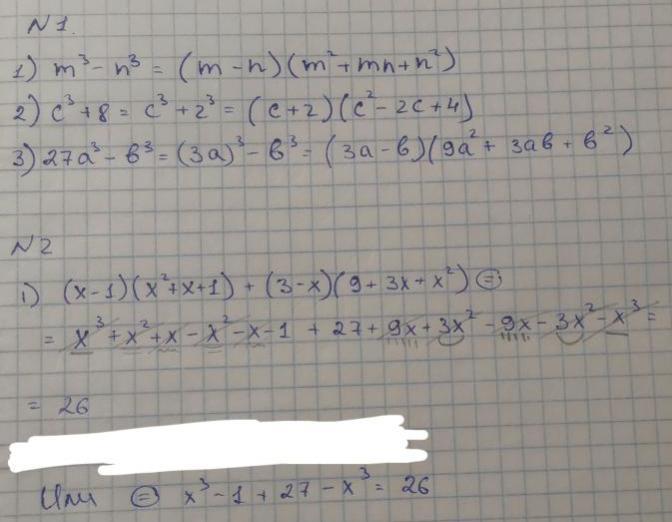 N1.
1) m³ - n³ = (m - n)(m² + mn + n²)
2) c³ + 8 = c³ + 2³ = (c + 2)(c² - 2c + 4)
3) 27a³ - в³ = (3a)³ - в³ = (3a - в)(9a² + 3aв + в²)
N2
1) (x - 1)(x² + x + 1) + (3 - x)(9 + 3x + x²) =
= x³ + x² + x - x² - x - 1 + 27 + 9x + 3x² - 9x - 3x² - x³ =
= 26
Или = x³ - 1 + 27 - x³ = 26